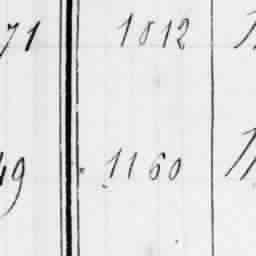 71 1812
49 1160